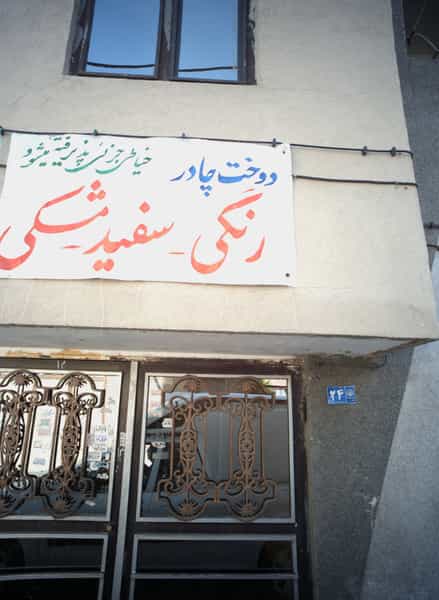 دوخت چادر
خیاطی جزئی پذیرفته میشود
رنگی - سفید - مشکی
۲۴
۱۲